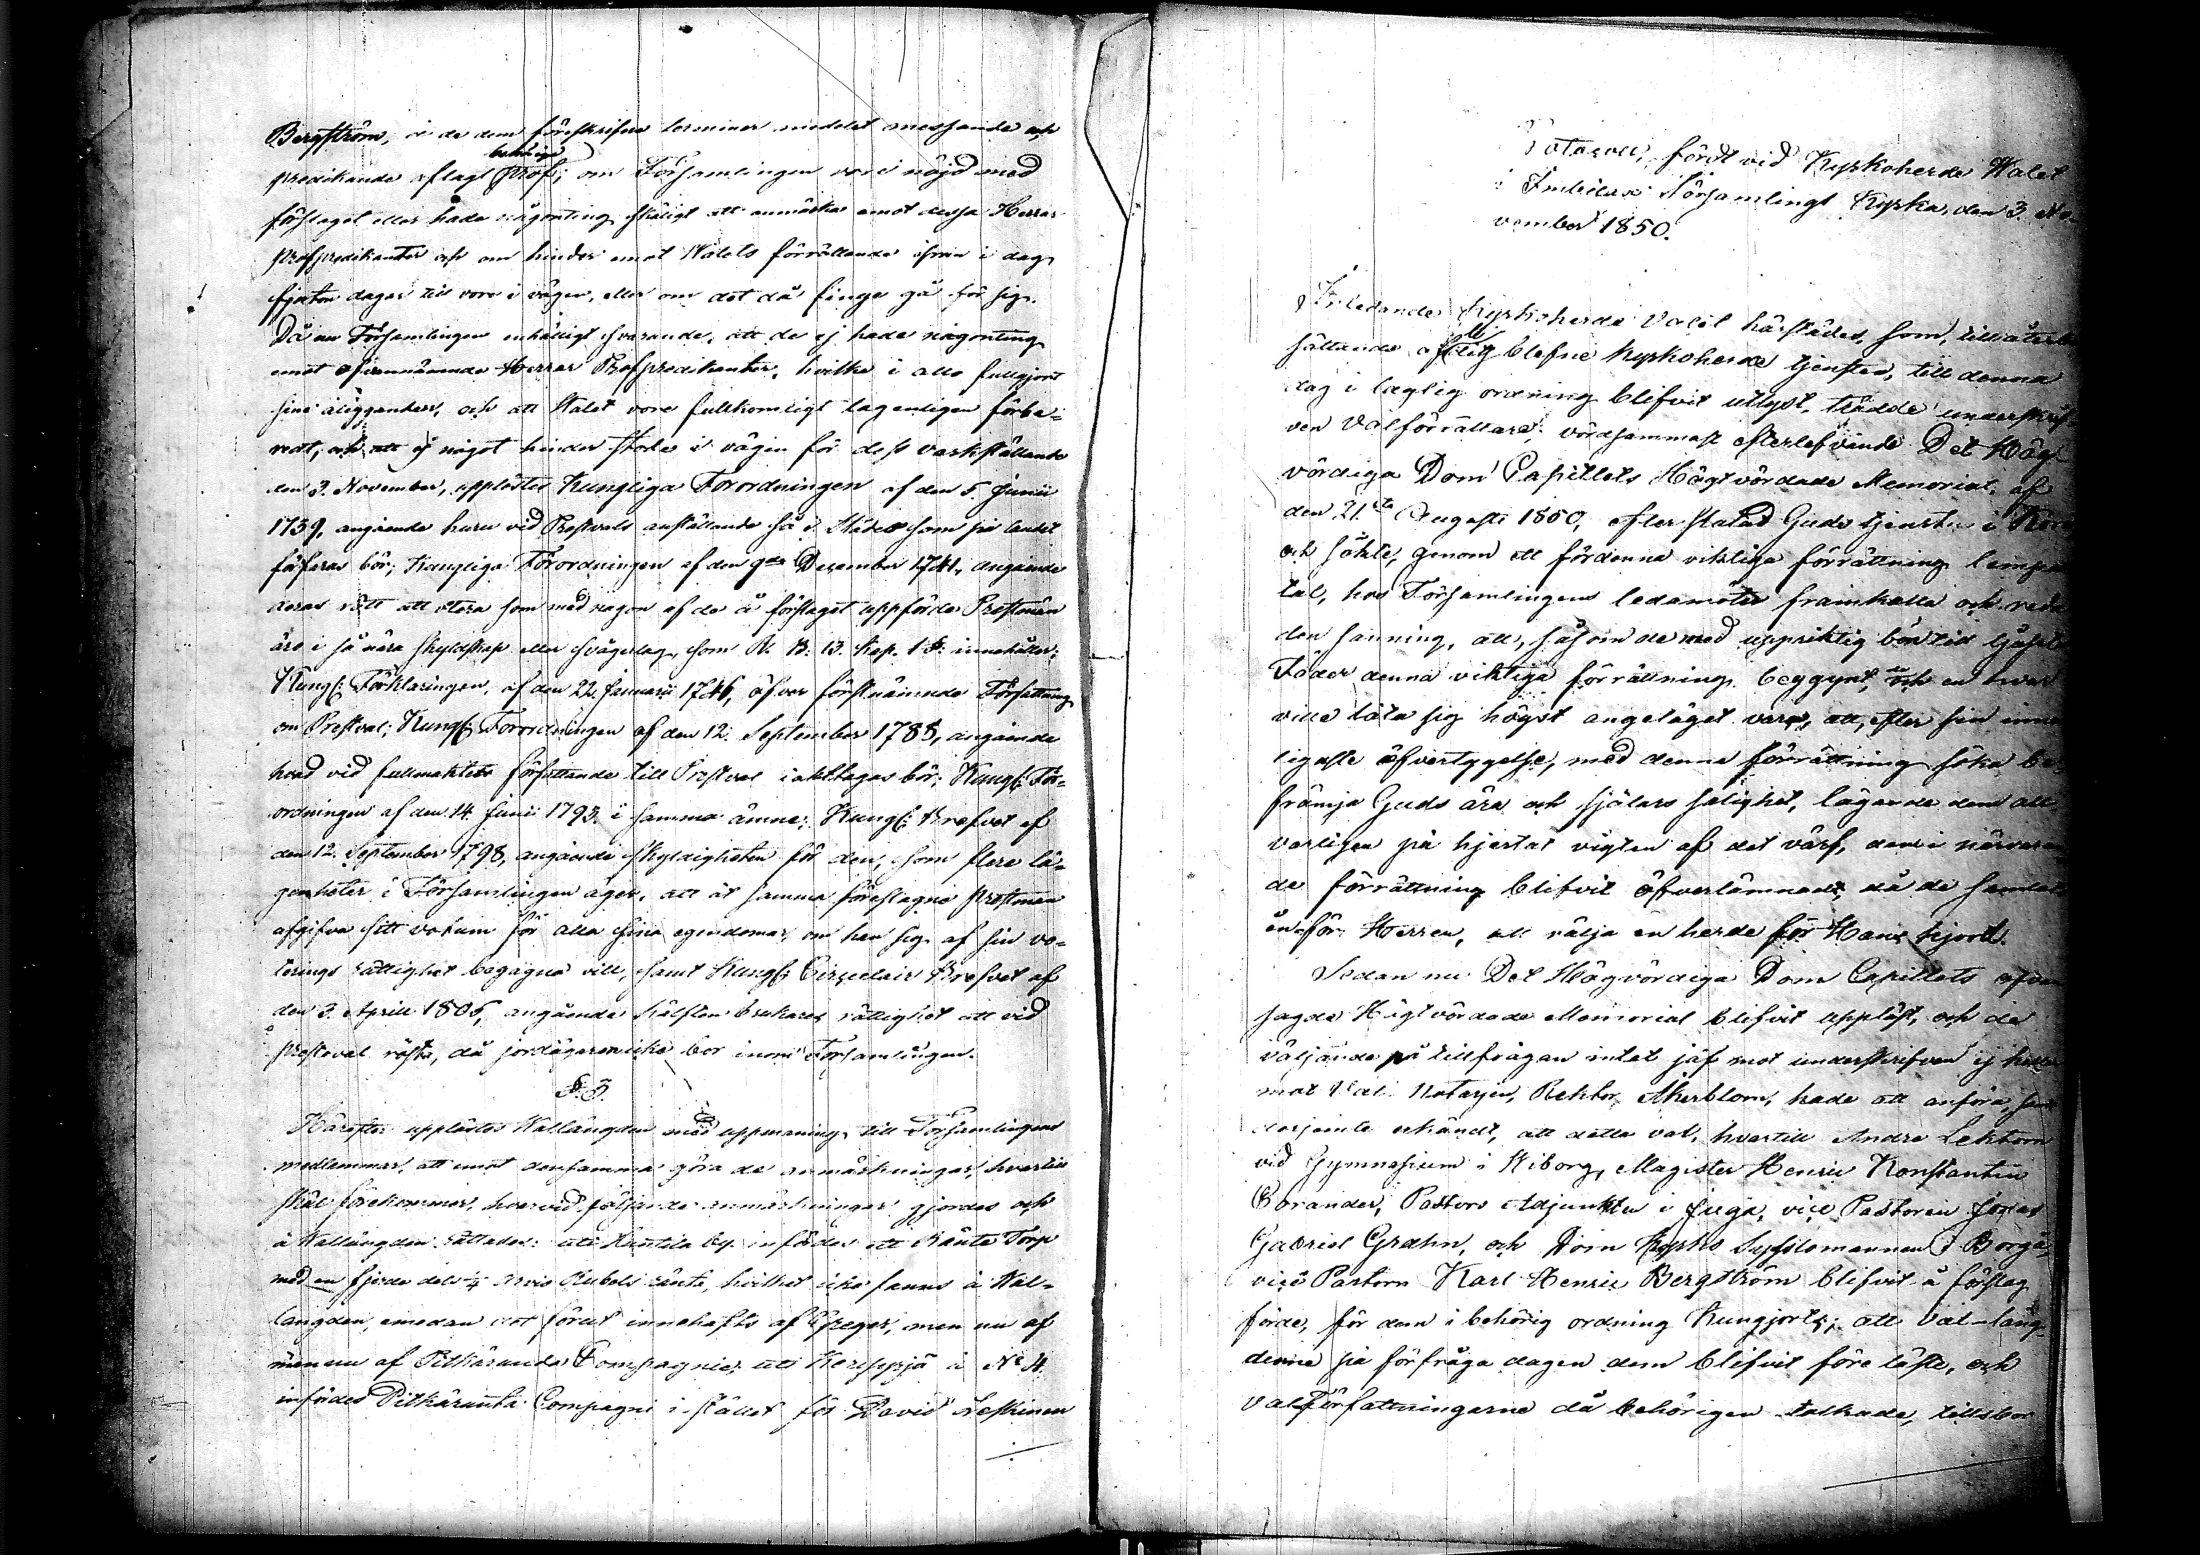 Bergström, i de dem föreskrifne terminer medelst messande och
behöriga
predikande aflagt prof; om Församlingen vore nöjd med
förslaget eller hade någonting skäligt att anmärka emot dessa Herrar
Profpredikanter och om hinder emot Walets förrättande ifrån i dag
fjorton dagar till vore i vägen, eller om det då finge gå för sig.
Då nu Församlingen enhälligt svarande, att de ej hade någonting
emot ofvannämnde Herrar Profpredikanter, hvilka i allo fullgjort
sine åligganden, och att Walet vore fullkomligt lagenligen förbe-
redt, och att ej något hinder stode i vägen för dess verkställande
den 3. November, upplästes Kungliga Förordningen af den 5. Junii
1739, angående huru vid Prestvals anställande så i Städer som på landet
förfaras bör; Kungliga Förordningen af den 9de December 1741, angående
deras rätt att votera som med någon af de å förslaget uppförde Prestmän
äro i så nära skyldskap eller svågerlag, som R. B. 13. Kap. 1 §. innehåller;
Kungl: Förklaringen, af den 22. Januarii 1746, öfver förstnämnde Författning
om Prestval; Kungl: Förordningen af den 12. September 1783, angående
hvad vid fullmakters författande till Prestval iakttagas bör; Kungl: För-
ordningen af den 14 Junii 1793. i samma ämne; Kungl: Brefvet af
den 12. September 1798, angående skyldigheten för den, som flere lä-
genheter i Församlingen äger, att åt samma föreslagne prestman
afgifva sitt votum för alla sina egendomar, om han sig af sin vo-
terings rättighet begagna vill, samt Kungl: Circulair Brefvet af
den 3. Aprill 1806, angående hälften brukares rättighet att vid
prestval rösta, då jordägaren icke bor inom Församlingen.
§. 3.
Härefter upplästes Wallängden med uppmaning till Församlingens
medlemmar, att emot densamma göra de anmärkningar, hvartill
skäl förekommer, hvarvid följande anmärkningar gjordes och
å Wallängden rättades: uti by infördes ett Ränte Torp
med en fjerde dels 1/4 Rubels ränte, hvilket icke fanns å Wal-
längden, emedan det förut innehafts af , men nu af
af Pitkäranda Compagnie; uti å No 4.
infördes Pitkäranta Compagni i stället för David Neskinen
Protocoll, fördt vid Kyrkoherde Walet
i Församlings Kyrka, den 3. No-
vember 1850.
Inledande Kyrkoherde Valet härstädes, som, till återbe-
sättande af ledig blefne Kyrkoherde tjensten, till denna
dag i laglig ordning blifvit utlyst, trädde underskrif-
ven Valförrättare, vördsammast efterlefvande Det Hög-
vördiga Dom Capitlets Högtvördade Memorial, af
den 21sta Augusti 1850, efter slutad Gudstjenst i
och sökte, genom ett för denna viktiga förrättning
tal, hos Församlingens ledamöter framkalla och
den sanning, att, såsom de med uppriktig bön till ljusets
Fader denna viktiga förrättning begynt, och en hvar
ville låta sig högst angeläget vara, att, efter sin inner-
ligaste öfvertygelse, med denna förrättning söka be-
främja Guds ära och själars salighet, läggande dem all-
varligen på hjertat vigten af det värf, dem i närvaran-
de förrättning blifvit öfverlämnadt, då de samlat
inför Herren, att välja en herde för Hans hjord.
Sedan nu Det Högvördiga Dom Capitlets ofvan
sagde Högtvördade Memorial blifvit uppläst, och de
väljande på tillfrågan intet jäf mot underskrifven ej heller
mot Val Notarjen, Rektor Åkerblom, hade att anföra,
derjemte erkändt, att detta val, hvartill Andre Lektorn
vid Gymnasium i Wiborg, Magister Henric Konstantin
Corander, Pastors Adjunkten i , vice Pastoren Jonas
Gabriel Grahn, och Dom Kyrko Sysslomannen i Borgå,
vice Pastorn Karl Henric Bergström blifvit å förslag
förde, för dem i behörig ordning kungjorts; att Val-läng-
derne på förfråga dagen dem blifvit före läste, och
Valförfattningarne då behörigen tolkade, tillsbor